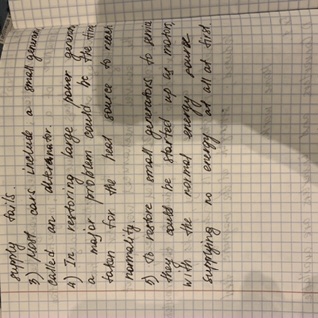 supply fails.
3) Most cars include a small generator
called an alternator.
4) In restoring large power generat
a major problem could be the time
taken for the heat source to reach
normality.
5) To restore small generators to
they could be started up as motors
with the normal energy source
supplying no energy at all at first.